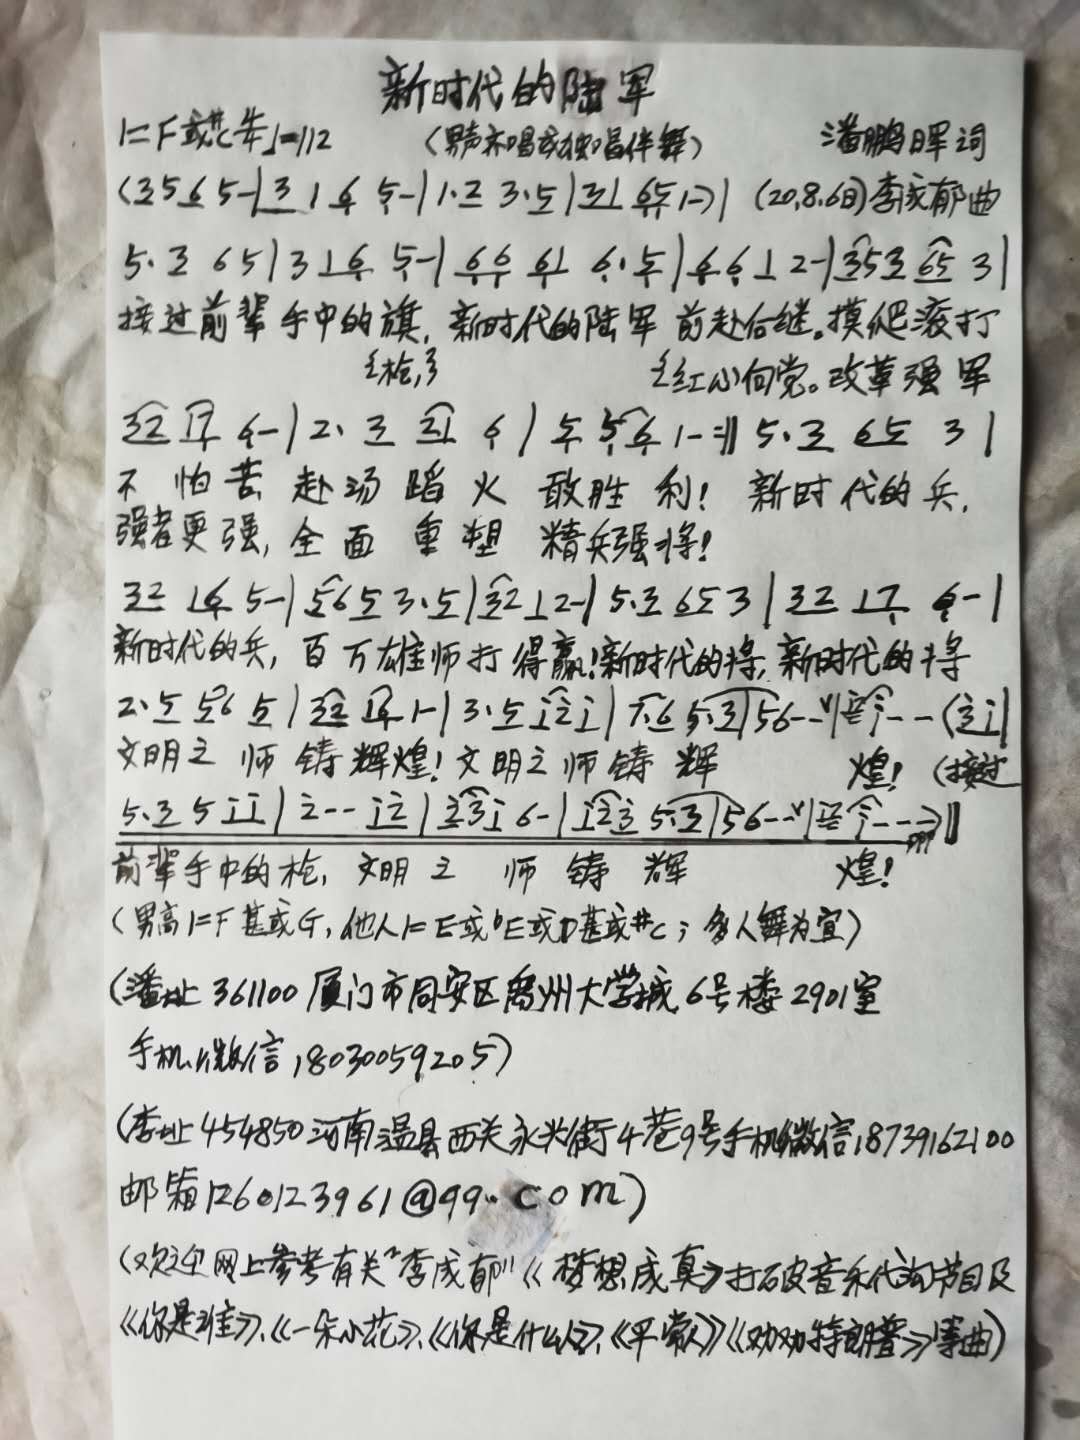 新时代的陆军
1=F或#C 4/4 ♩=112 （男声齐唱或独唱伴舞） 潘鹏晖词
(3 5 6 5 - | 3 1 6 5 - | 1· 2 3· 5 | 3 1 6 5 1 -) | (20.8.6日) 李成郁曲
5· 3 6 5 | 3 1 6 5 - | 6 6 6 1 6· 5 | 6 6 1 2 - | 3 5 3 6 5 3 |
接过前辈手中的旗，新时代的陆军 前赴后继。摸爬滚打
{枪,} {红心向党。改革强军
3 2 1 7 6 - | 2· 3 2 1 6 | 5 5 6 1 - :‖ 5· 3 6 5 3 |
不怕苦 赴汤蹈火 敢胜利！新时代的兵，
强者更强，全面重塑 精兵强将！
3 2 1 6 5 - | 5 6 5 3· 5 | 3 2 1 2 - | 5· 3 6 5 3 | 3 2 1 7 6 - |
新时代的兵，百万雄师打得赢！新时代的将，新时代的将
2· 5 5 6 5 | 3 2 1 7 1 - | 3· 5 i 2 i | 7· 6 5· 3 | 5 6 - - ∨ | i - - - (2 i |
文明之师铸辉煌！文明之师铸辉 煌！（接过
5· 3 5 i i | 2 - - i 2 | 3 3 i 6 - | i 2 3 5· 3 | 5 6 - - ∨ | i - - -) ‖
前辈手中的枪，文明之 师铸辉 煌！
（男高1=F甚或G，他人1=E或bE或D甚或#C；多人舞为宜）
（潘址361100厦门市同安区禹州大学城6号楼2901室
手机、微信18030059205）
（李址454850河南温县西关永兴街4巷9号手机微信18739162100
邮箱1260123961@qq.com）
（欢迎网上参考有关“李成郁”《梦想成真》打破音乐代沟节目及
《你是谁》、《一朵小花》、《你是什么人》、《平常人》《劝劝特朗普》等曲）